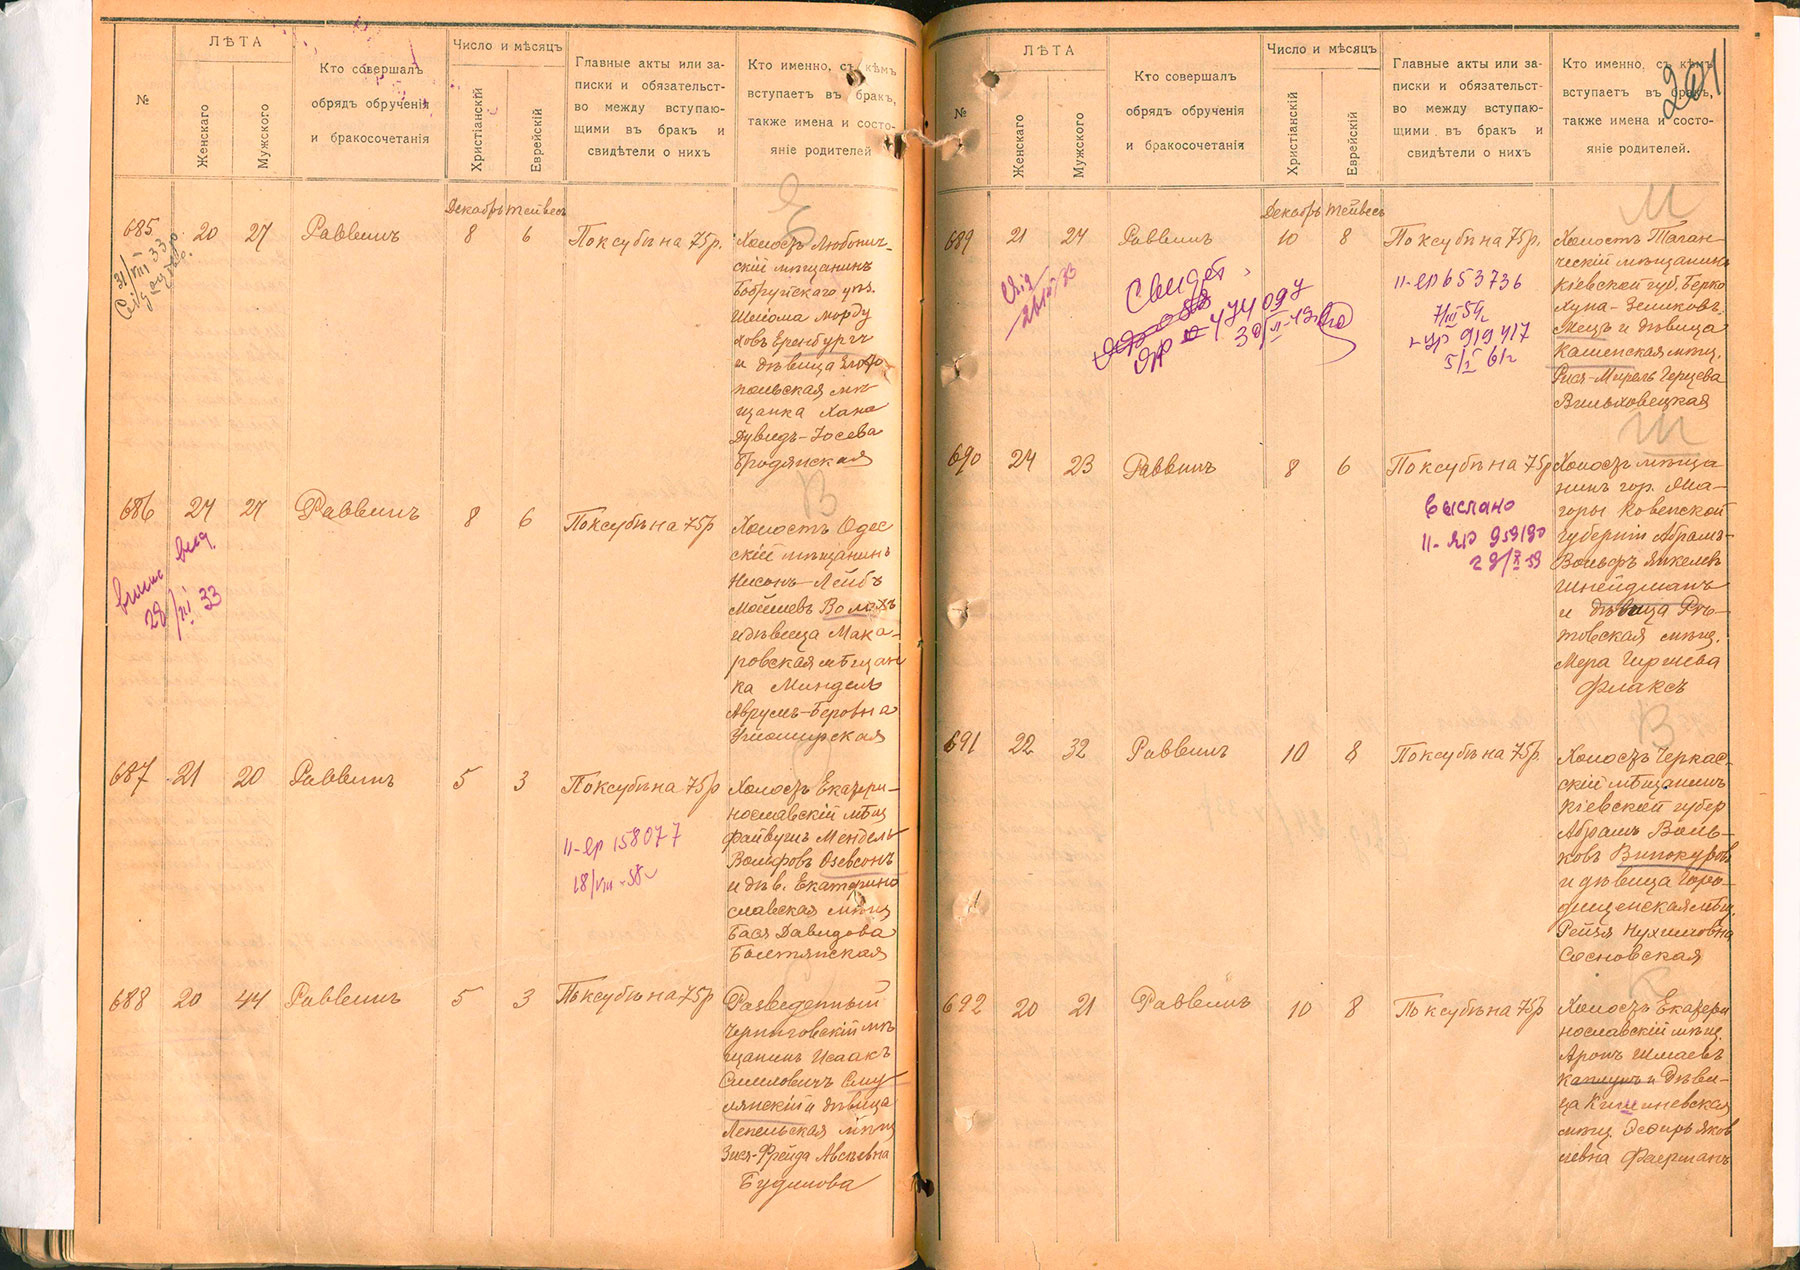 №
ЛѢТА
Женскаго
Мужского
Кто совершалъ
обрядъ обрученія
и бракосочетанія
Число и мѣсяцъ
Христіанскій
Еврейскій
Главные акты или за-
писки и обязательст-
во между вступаю-
щими въ бракъ и
свидѣтели о нихъ
Кто именно, съ кѣмъ
вступаетъ въ бракъ,
также имена и состо-
яніе родителей
Декабрь Тейвесъ
685 20 27 Раввинъ 8 6 По ксубѣ на 75 р.
31/VIII 33
Холостъ Любонич-
скій мѣщанинъ
Бобруйскаго уѣз.
Шлёма Морду
ховъ Еренбургъ
и дѣвица Злато
польская мѣ
щанка Хана
Дувидъ-Іосева
Бродянская
Е
686 24 27 Раввинъ 8 6 По ксубѣ на 75 р
28/VII 33
В
Холостъ Одес
скій мѣщанинъ
Нисонъ-Лейбъ
Мошиевъ Волохъ
и дѣвица Мака-
ровская мѣщан
ка Миндель
Аврумъ-Беровна
687 21 20 Раввинъ 5 3 По ксубѣ на 75 р
II-ЯР 158077
18/VIII-58г
Холостъ Екатери-
нославскій мѣщ
Файвушъ Мендель
Вольфовъ Озевсонъ
и дѣв. Екатерино
славская мѣщ
Бася Давидова
Болтянская
688 20 44 Раввинъ 5 3 По ксубѣ на 75 р
Разведенный
Черниговскій мѣ
щанинъ Исаакъ
Симиловичъ Сму
лянскій и дѣвица
Лепельская мѣщ
Зися-Фрейда Авсѣевна
Будилова
201
№
ЛѢТА
Женскаго
Мужского
Кто совершалъ
обрядъ обрученія
и бракосочетанія
Число и мѣсяцъ
Христіанскій
Еврейскій
Главные акты или за-
писки и обязательст-
во между вступаю-
щими въ бракъ и
свидѣтели о нихъ
Кто именно, съ кѣмъ
вступаетъ въ бракъ,
также имена и состо-
яніе родителей.
Декабрь Тейвесъ
689 21 24 Раввинъ 10 8 По ксубѣ на 75 р.
Свидет
ЯР 474097
II-ЯР 653736
7/III 54г
919417
5/I 61г
М
Холостъ Таган-
ческій мѣщанинъ
Кіевской губ. Берко
Хуна-Зеликовъ
Мецъ и дѣвица
Каменская мѣщ.
Рися-Мирель Герцева
Вильховецкая
690 24 23 Раввинъ 8 6 По ксубѣ на 75 р
Выслано
II-ЯР 959180
29/X-59
Ш
Холостъ мѣща
нинъ гор. Жа-
горы Ковенской
губерніи Абрамъ-
Вольфъ Янкелевъ
Шнейдманъ
и дѣвица Рѣ-
товская мѣщ.
Мера Гиршева
Флаксъ
691 22 32 Раввинъ 10 8 По ксубѣ на 75 р.
В
Холостъ Черкас-
скій мѣщанинъ
Кіевской губер
Абрамъ Воль-
ковъ Винокуровъ
и дѣвица Горо-
дищенская мѣщ.
Рейзя Нухимовна
Сосновская
692 20 21 Раввинъ 10 8 По ксубѣ на 75 р
К
Холостъ Екатери
нославскій мѣщ.
Аронъ Шмаевъ
Каплунъ и дѣви-
ца Кишиневская
мѣщ. Эсфирь Яков
левна Фаерманъ